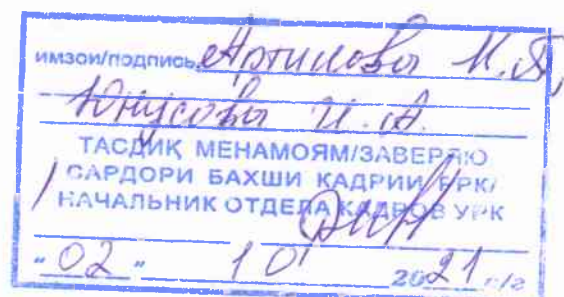 имзои/подпись Артикова М.А.
Юнусова И.А.
ТАСДИҚ МЕНАМОЯМ/ЗАВЕРЯЮ
САРДОРИ БАХШИ КАДРИИ РРК/
НАЧАЛЬНИК ОТДЕЛА КАДРОВ УРК
"02" 10 2021 с/г